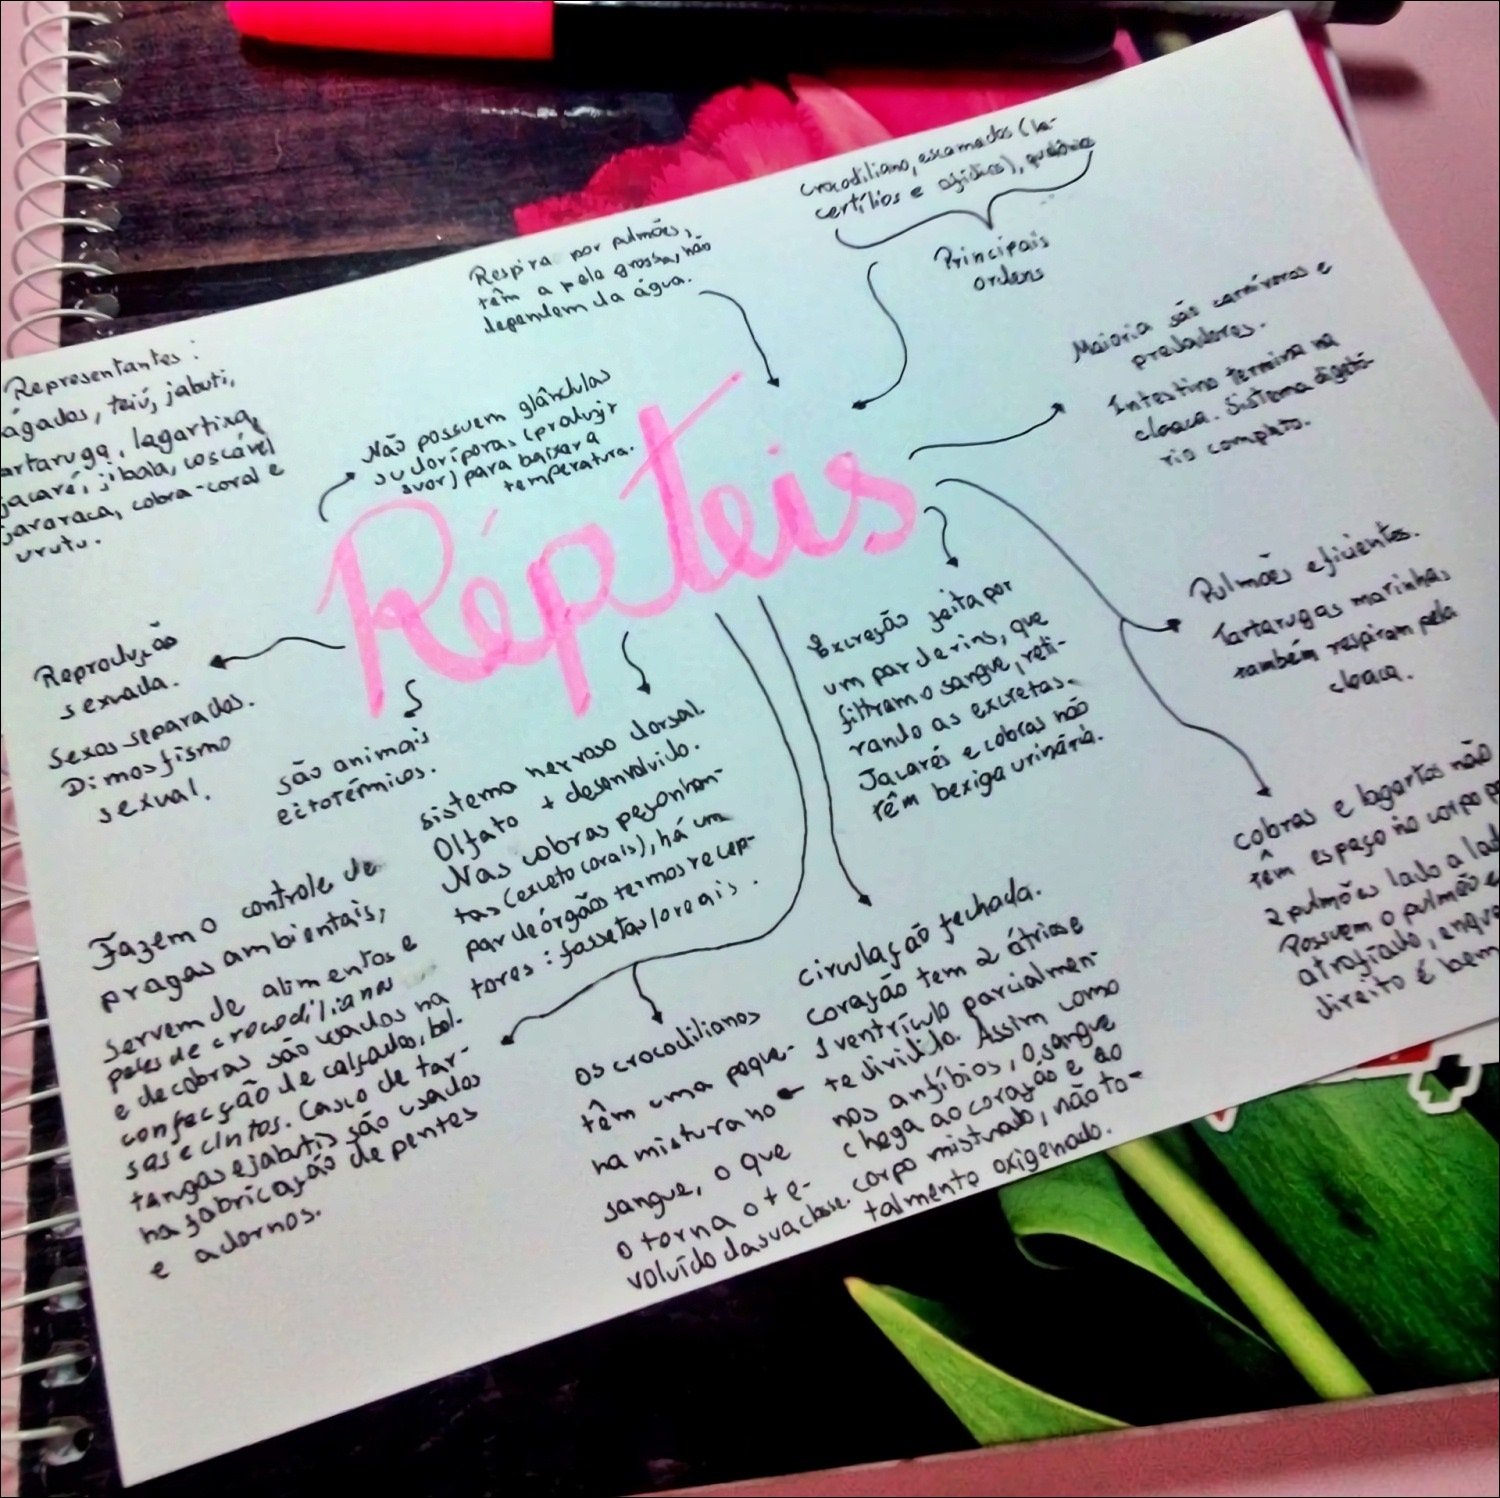 Crocodiliano, escamados (la-
certílios e ofídios), quelônios
Principais
ordens
Respira por pulmões,
têm a pele grossa, não
dependem da água.
Representantes:
ágados, teiú, jabuti,
artaruga, lagartixa,
jacaré, jiboia, cascável
jararaca, cobra-coral e
urutu.
Não possuem glândulas
sudoríporas (produzir
suor) para baixar a
temperatura.
Répteis
Maioria são carnívoros e
predadores.
Intestino termina na
cloaca. Sistema digestó-
rio completo.
Pulmões eficientes.
Tartarugas marinhas
também respiram pela
cloaca.
Excreção feita por
um par de rins, que
filtram o sangue, reti-
rando as excretas.
Jacarés e cobras não
têm bexiga urinária.
Reprodução
sexuada.
Sexos separados.
Dimosfismo
sexual.
são animais
ectotérmicos.
Sistema nervoso dorsal.
Olfato + desenvolvido.
Nas cobras peçonhen-
tas (exceto corais), há um
par de órgãos termosrecep-
tores: fossetas loreais.
cobras e lagartos não
têm espaço no corpo p
2 pulmões lado a lad
Possuem o pulmão e
atrofiado, enqu
direito é bem
Fazem o controle de
pragas ambientais,
servem de alimentos e
peles de crocodiliann
e de cobras são usados na
confecção de calçados, bol-
sas e cintos. Casco de tar-
tarugas e jabutis são usados
na fabricação de pentes
e adornos.
Os crocodilianos
têm uma peque-
na mistura no
sangue, o que
o torna o + e-
voluído da sua classe.
circulação fechada.
coração tem 2 átrios e
1 ventrículo parcialmen-
te dividido. Assim como
nos anfíbios, o sangue
chega ao coração e ao
corpo misturado, não to-
talmente oxigenado.